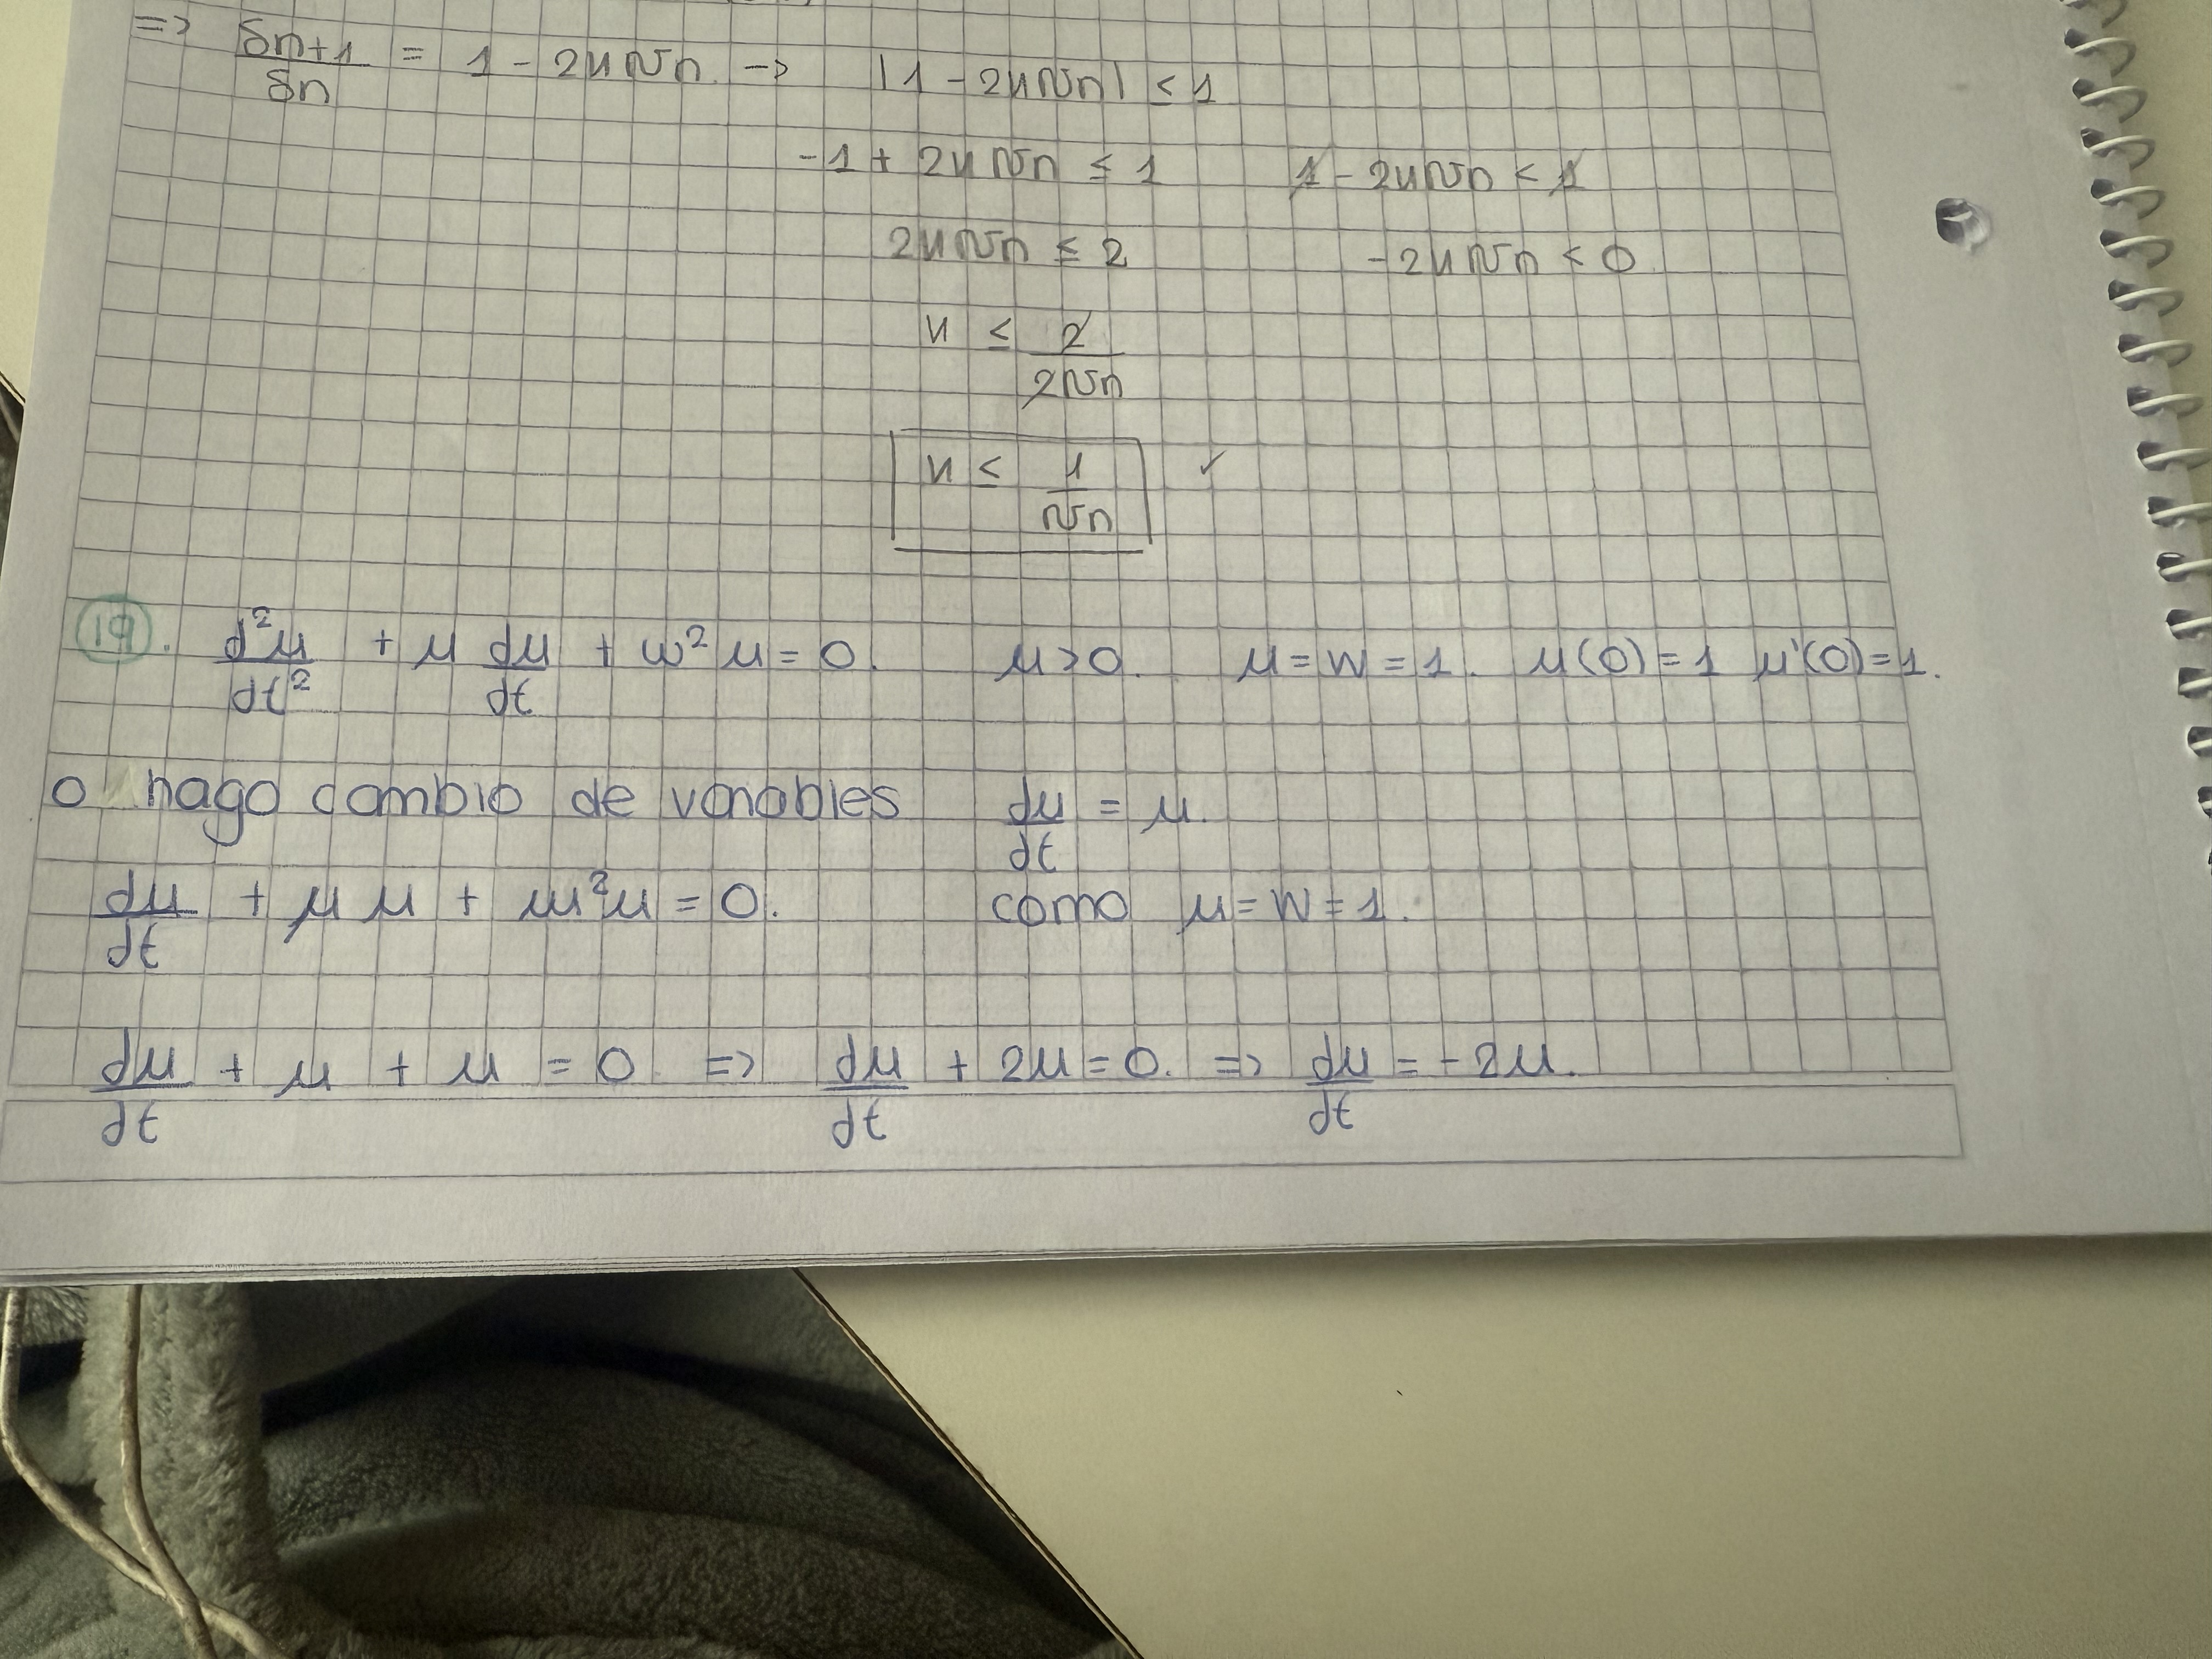 => δn+1/δn = 1 - 2hNn -> |1 - 2hNn| ≤ 1
-1 + 2hNn ≤ 1 1 - 2hNn < 1
2hNn ≤ 2 -2hNn < 0
h ≤ 2/2Nn
h ≤ 1/Nn ✓
19. d²u/dt² + μ du/dt + w² u = 0. μ > 0. μ = w = 1. u(0) = 1 u'(0) = 1.
o hago cambio de variables du/dt = u.
du/dt + μ u + w²u = 0. como μ = w = 1.
du/dt + u + u = 0 => du/dt + 2u = 0. => du/dt = -2u.